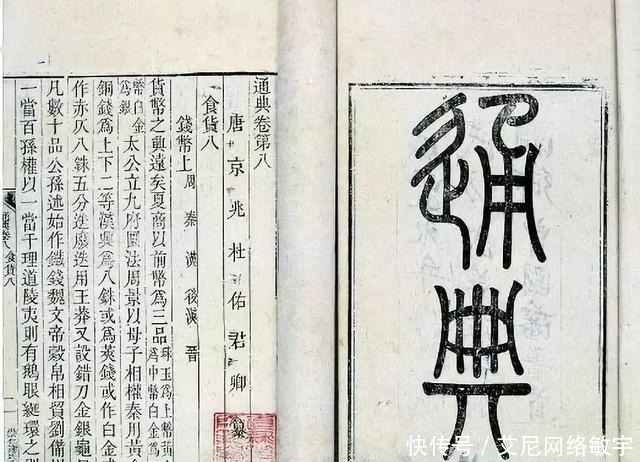 通典
通典卷第八
唐京兆杜佑君卿纂
食貨八
錢幣上 周 秦 漢 後漢 晉
貨幣之興遠矣夏商以前幣爲三品珠玉爲上幣黃爲中幣白金
太公立九府圜法周景以母子相權秦用黃
銅錢爲上下二等漢興爲八銖或爲莢錢或作白金
作赤仄八銖五分迭廢迭用王莽又設錯刀金銀龜
凡數十品公孫述始作鐵錢魏文帝穀帛相貿劉備
一當百孫權以一當千理道陵夷則有鵝眼綖環之
食貨八
快传号 / 艾尼网络敏宇